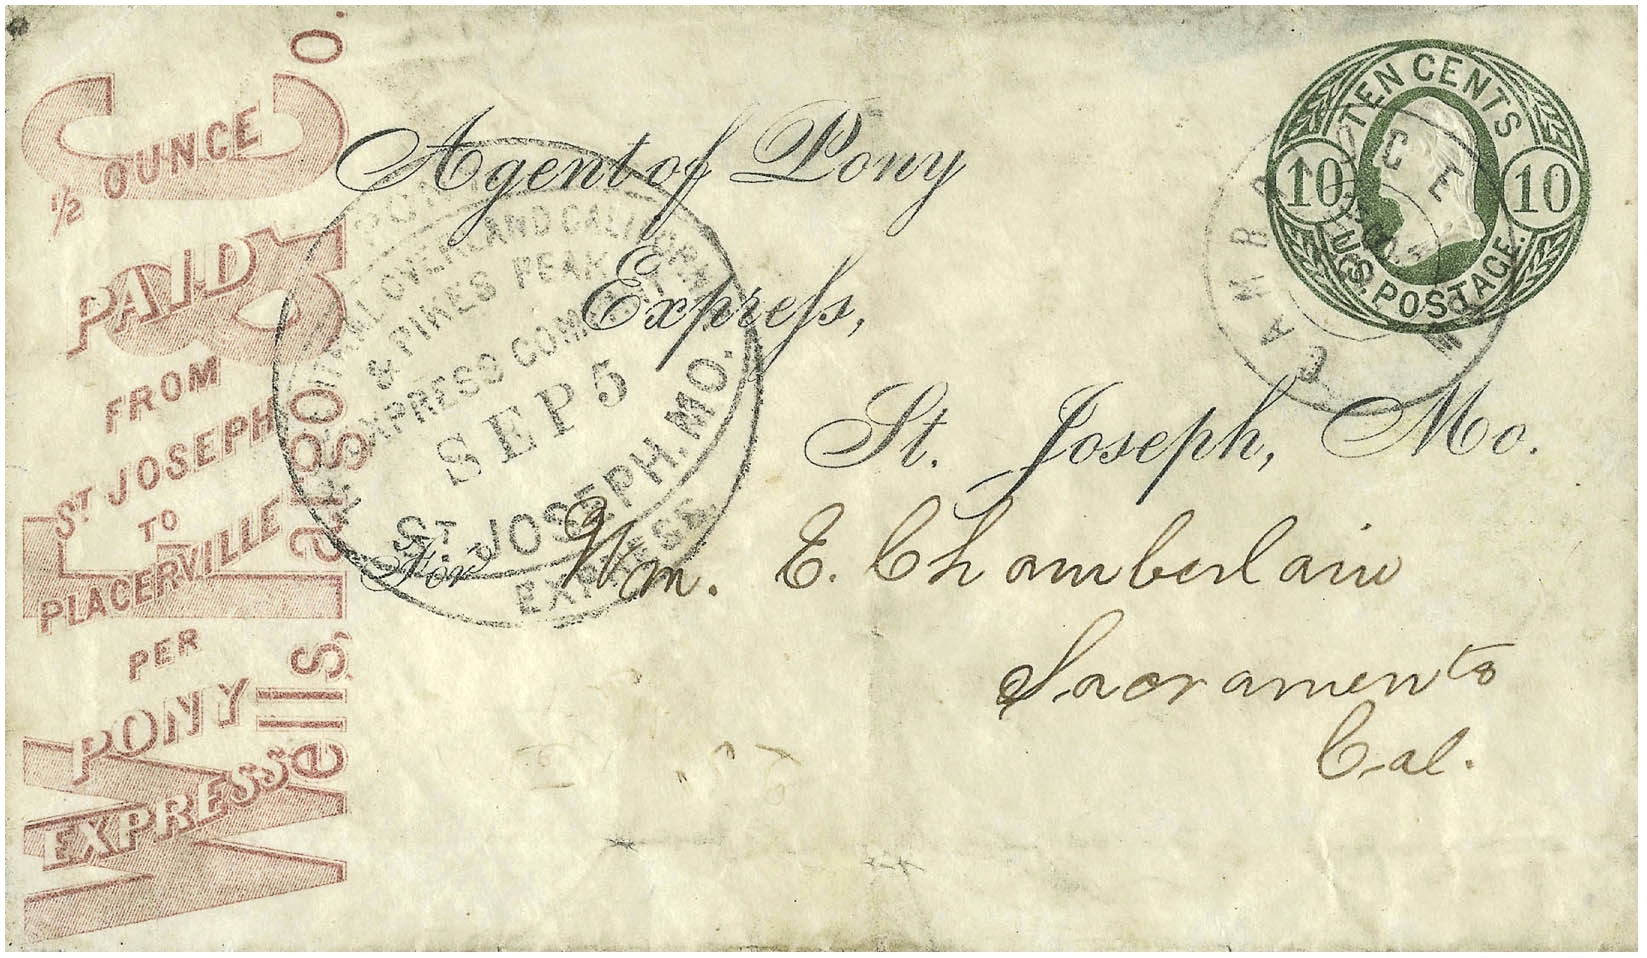 ½ OUNCE
PAID
FROM
ST JOSEPH
TO
PLACERVILLE
PER
PONY
EXPRESS
Wells, Fargo & Co.
Agent of Pony
Express,
St. Joseph, Mo.
For Wm. E. Chamberlain
Sacramento
Cal.
PONY
OVERLAND CALIFORNIA
& PIKES PEAK
EXPRESS COMPANY
SEP 5
ST JOSEPH. MO.
EXPRESS.
TEN CENTS
10 10
U.S. POSTAGE.